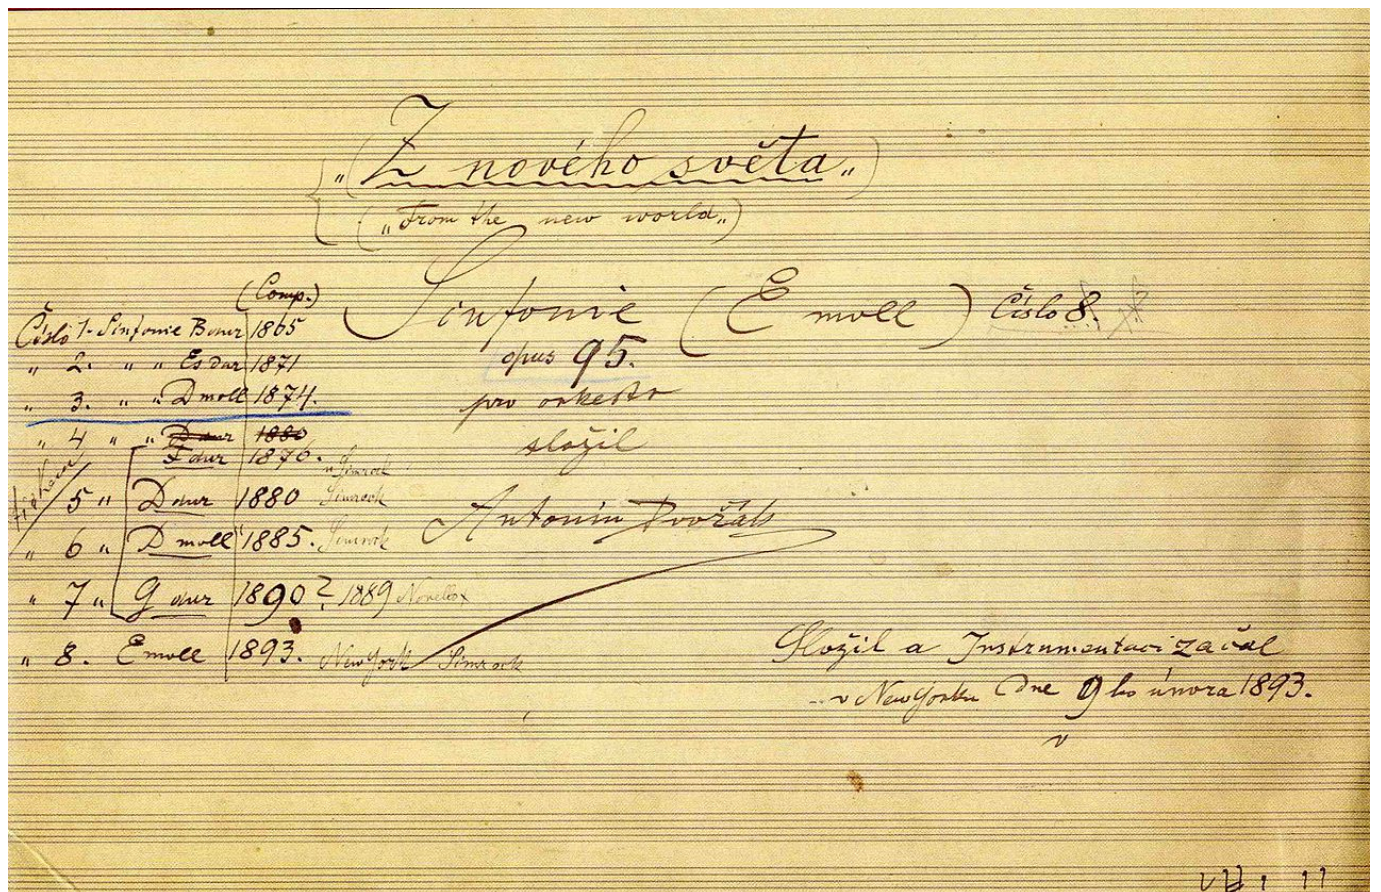 „Z nového světa„
(„From the new world„)
Sinfonie (E moll) Číslo 8.
opus 95.
pro orkestr
složil
Antonín Dvořák
(Comp.)
Číslo 1. Sinfonie B dur 1865
„ 2. „ „ Es dur 1871
„ 3. „ „ D moll 1874.
„ 4 „ „ D dur 1880
F dur 1876. u Simrock
5 „ D dur 1880 Simrock
„ 6 „ D moll 1885. Simrock
„ 7 „ G dur 1890? 1889 Novello
„ 8. E moll 1893. New York Simrock
Složil a Instrumentaci začal
v New Yorku Dne 9ho února 1893.